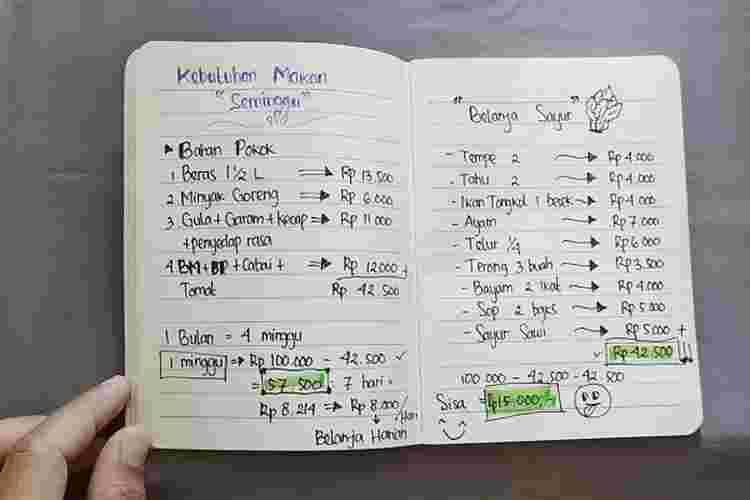 Kebutuhan Makan
"Seminggu"
Bahan Pokok
1. Beras 1 1/2 L Rp 13.500
2. Minyak Goreng Rp 6.000
3. Gula + Garam + kecap Rp 11.000
+ penyedap rasa
4. BM + BP + Cabai + Rp 12.000 +
Tomat Rp 42.500
1 Bulan = 4 minggu
1 minggu => Rp 100.000 - 42.500 ✓
= 57.500 : 7 hari =
Rp 8.214 => Rp 8.000 /Hari
Belanja Harian
"Belanja Sayur"
- Tempe 2 Rp 4.000
- Tahu 2 Rp 4.000
- Ikan Tongkol 1 besek Rp 4.000
- Ayam Rp 7.000
- Telur 1/4 Rp 6.000
- Terong 3 buah Rp 3.500
- Bayam 2 Ikat Rp 4.000
- Sop 2 bqks Rp 5.000
- Sayur Sawi Rp 5.000 +
✓ Rp 42.500 !!
100.000 - 42.500 - 42.500
Sisa = Rp 15.000,-